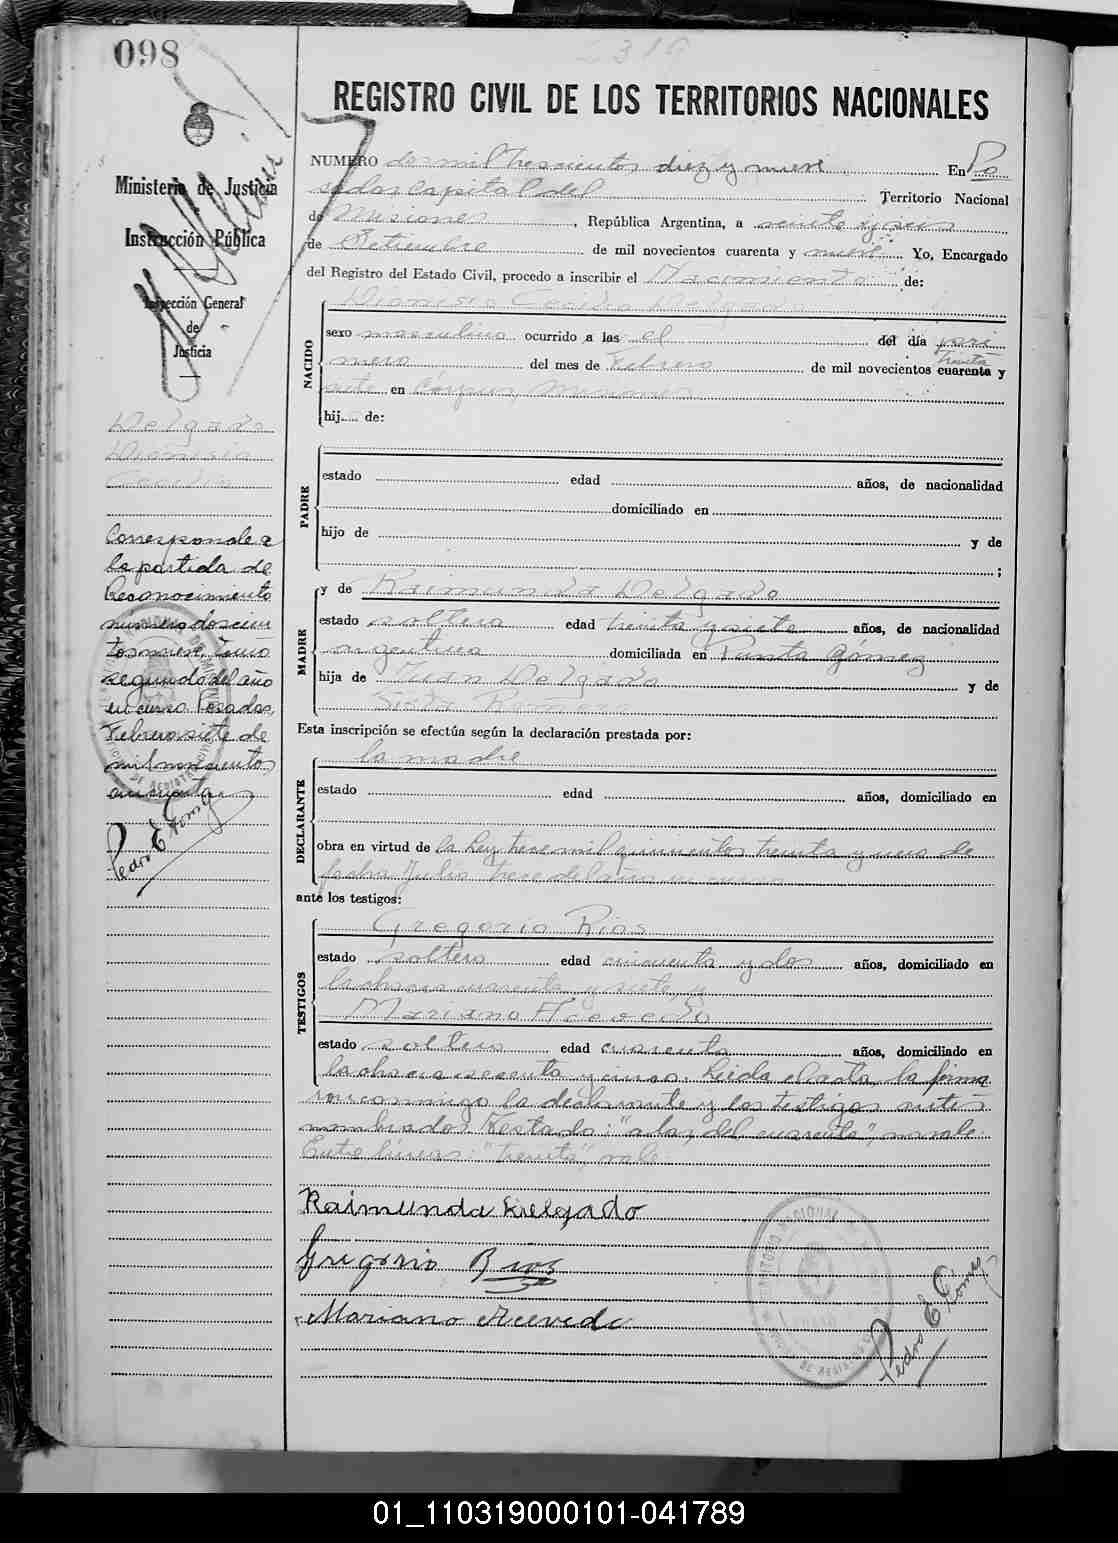 098
2319
REGISTRO CIVIL DE LOS TERRITORIOS NACIONALES
Ministerio de Justicia
Instrucción Pública
Inspección General
de
Justicia
Delgado
Dionisio
Cecilio
Corresponde a
la partida de
Reconocimiento
número doscien
tos nueve, tomo
segundo del año
en curso. Posadas,
Febrero siete de
mil novecientos
cincuenta
Pedro E. Gomez
NUMERO dos mil trescientos diez y nueve En Po
sadas Capital del Territorio Nacional
de Misiones, República Argentina, a veinte y seis
de Setiembre de mil novecientos cuarenta y nueve Yo, Encargado
del Registro del Estado Civil, procedo a inscribir el Nacimiento de:
NACIDO
Dionisio Cecilio Delgado
sexo masculino ocurrido a las el del día pri
mero del mes de Febrero de mil novecientos cuarenta y
treinta
siete en Corpus, Misiones
hij.... de:
PADRE
estado edad años, de nacionalidad
domiciliado en
hijo de y de
;
MADRE
y de Raimunda Delgado
estado soltera edad treinta y siete años, de nacionalidad
argentina domiciliada en Panta Gómez
hija de Juan Delgado y de
Sixta Romero
Esta inscripción se efectúa según la declaración prestada por:
DECLARANTE
la madre
estado edad años, domiciliado en
obra en virtud de la Ley trece mil quinientos treinta y de
fecha Julio trece del año en curso
ante los testigos:
TESTIGOS
Gregorio Rios
estado soltero edad cincuenta y dos años, domiciliado en
la chacra cuarenta y siete, y
Mariano Acevedo
estado soltero edad cuarenta años, domiciliado en
la chacra sesenta y cinco. Leída el acta, la firma
ron conmigo la declarante y los testigos antes
nombrados. Testado: "a las, del cuarenta", no vale.
Entre líneas: "treinta", vale.
Raimunda Delgado
Gregorio Rios
Mariano Acevedo
Pedro E. Gomez
01_110319000101-041789